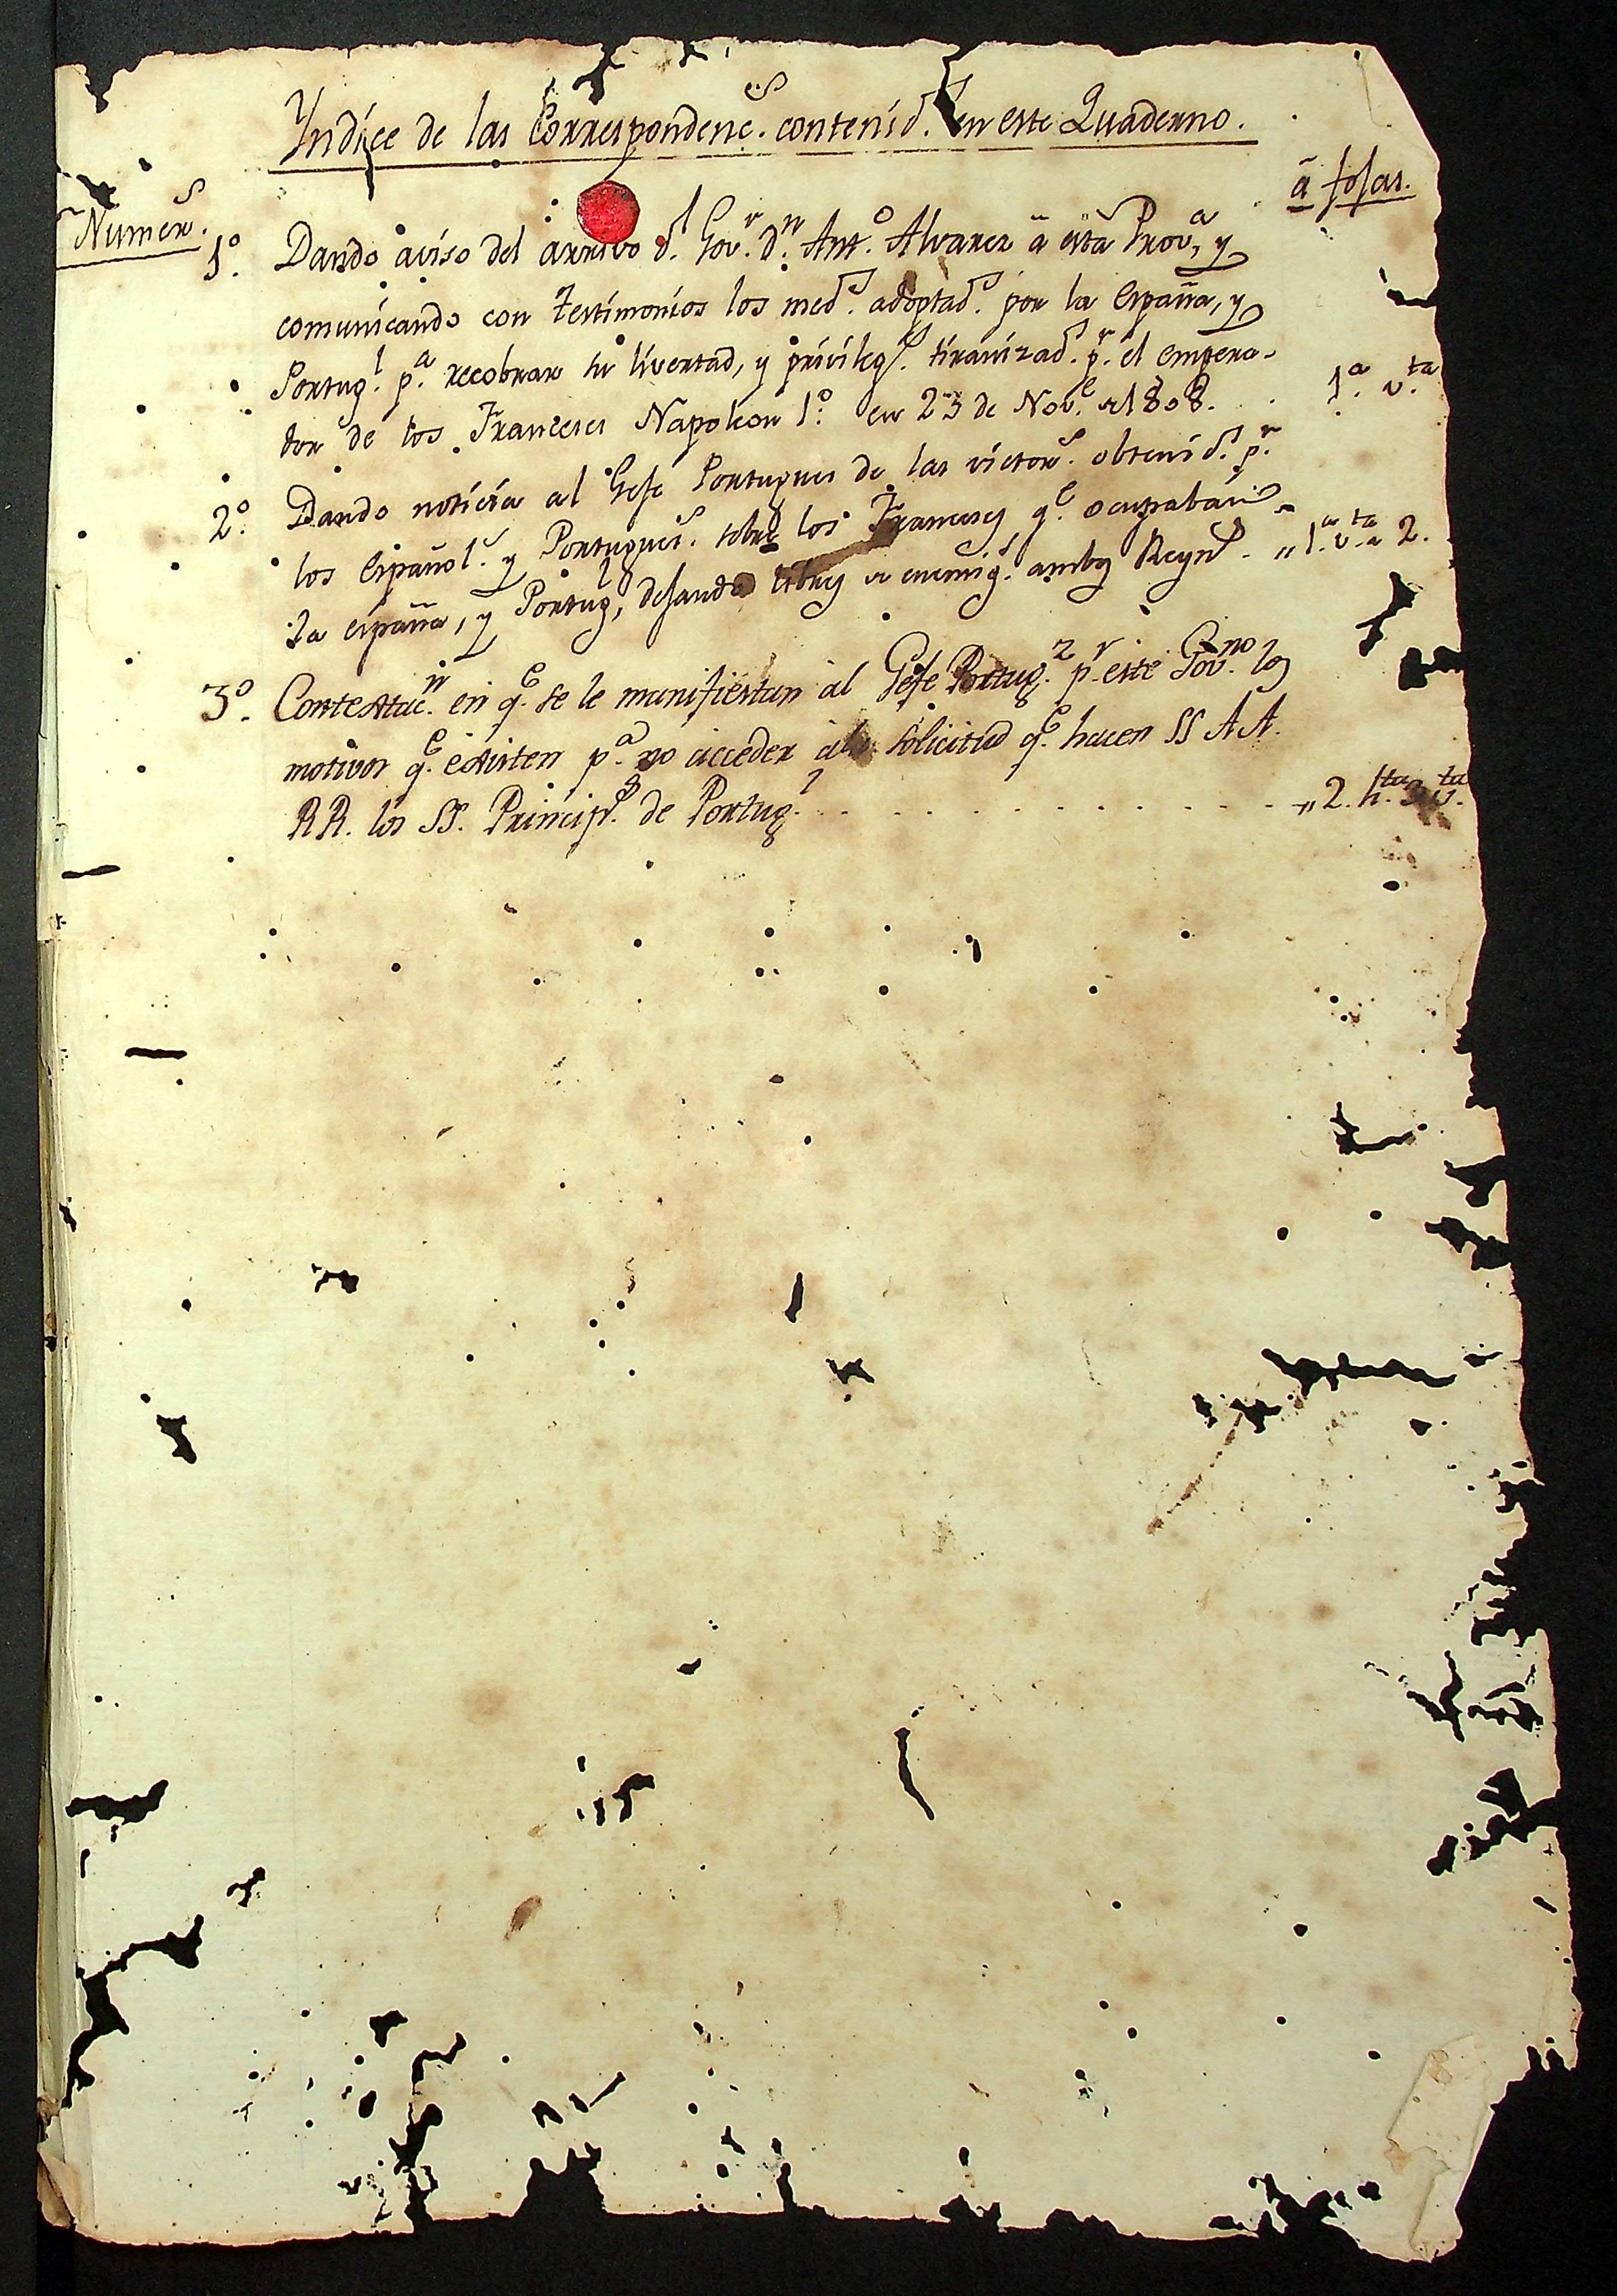 Yndice de las Correspondenc.s contenid.s en este Quaderno.
Numer.s
à fojas.
1.º Dando aviso del arrivo d.l Gov.r d.n Ant.º Alvarez à esta Prov.a, y
comunicando con Testimonios los med.s adoptad.s por la España, y
Portug.l p.a recobrar su livertad, y privileg.s tiranizad.s p.r el empera-
dor de los Franceses Napoleon 1.º en 23 de Nov.e de 1808. 1.a v.ta
2.º Dando noticia al Gefe Portugues de las victor.s obtenid.s p.r
los Español.s y Portugues.s sobre los Franceses q.e ocupaban
la españa, y Portug.l, dejando libres de enemig.s ambos Reyn.s „ 1.a v.ta a 2.
3.º Contestac.n en q.e se le manifiestan al Gefe Portug.z p.r este Gov.no los
motivos q.e existen p.a no acceder a la solicitud q.e hacen SS AA.
RR. los SS. Princip.s de Portug.l „ 2. h.ta 3 v.ta